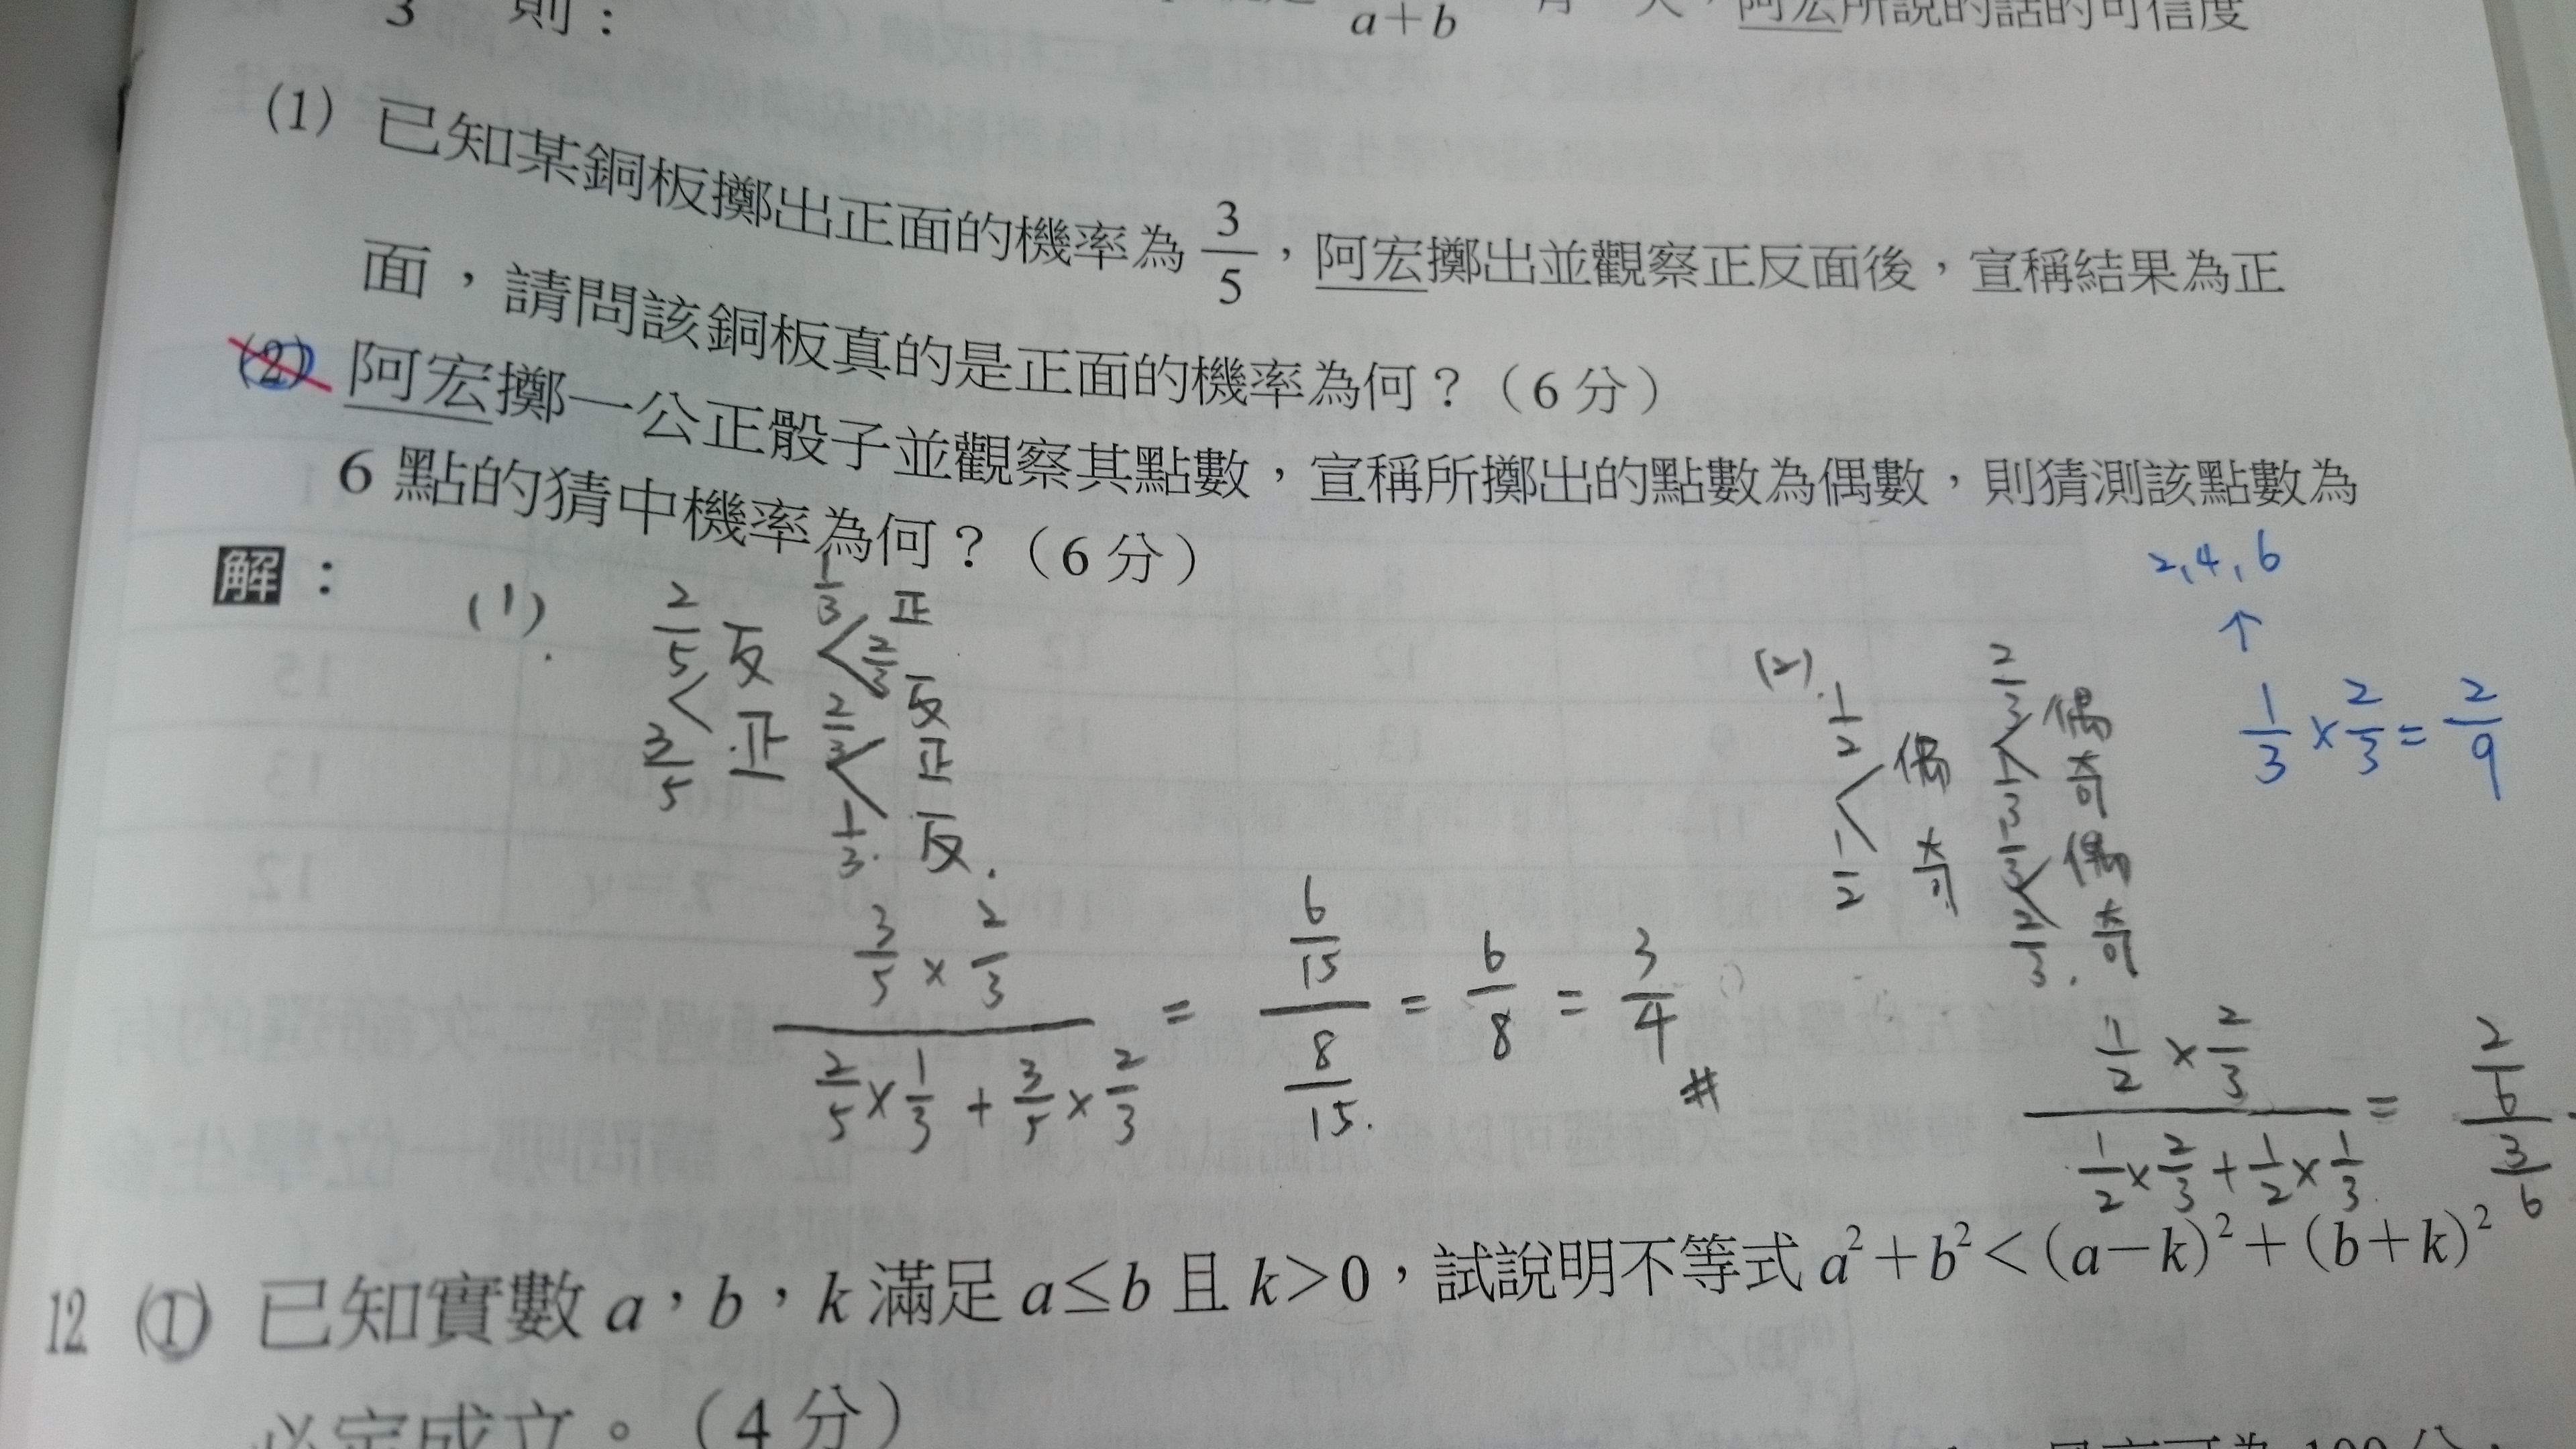 3 則：
a+b
阿宏所說的話的可信度
(1) 已知某銅板擲出正面的機率為 3/5，阿宏擲出並觀察正反面後，宣稱結果為正
面，請問該銅板真的是正面的機率為何？（6 分）
(2) 阿宏擲一公正骰子並觀察其點數，宣稱所擲出的點數為偶數，則猜測該點數為
6 點的猜中機率為何？（6 分）
解：
(1).
2/5 反 1/3 正
2/3 反
3/5 正 2/3 正
1/3 反.
(3/5 × 2/3)/(2/5 × 1/3 + 3/5 × 2/3) = (6/15)/(8/15) = 6/8 = 3/4 #
(2).
1/2 偶 2/3 偶
1/3 奇
1/2 奇 1/3 偶
2/3 奇
(1/2 × 2/3)/(1/2 × 2/3 + 1/2 × 1/3) = (2/6)/(3/6)
2,4,6
↑
1/3 × 2/3 = 2/9
12 (1) 已知實數 a，b，k 滿足 a≤b 且 k>0，試說明不等式 a²+b²<(a−k)²+(b+k)²
必定成立。（4 分）